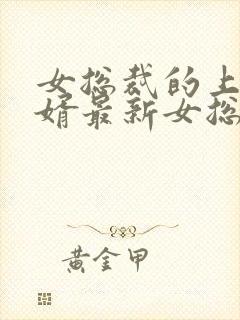 女总裁的上
婿最新女总
黄金甲